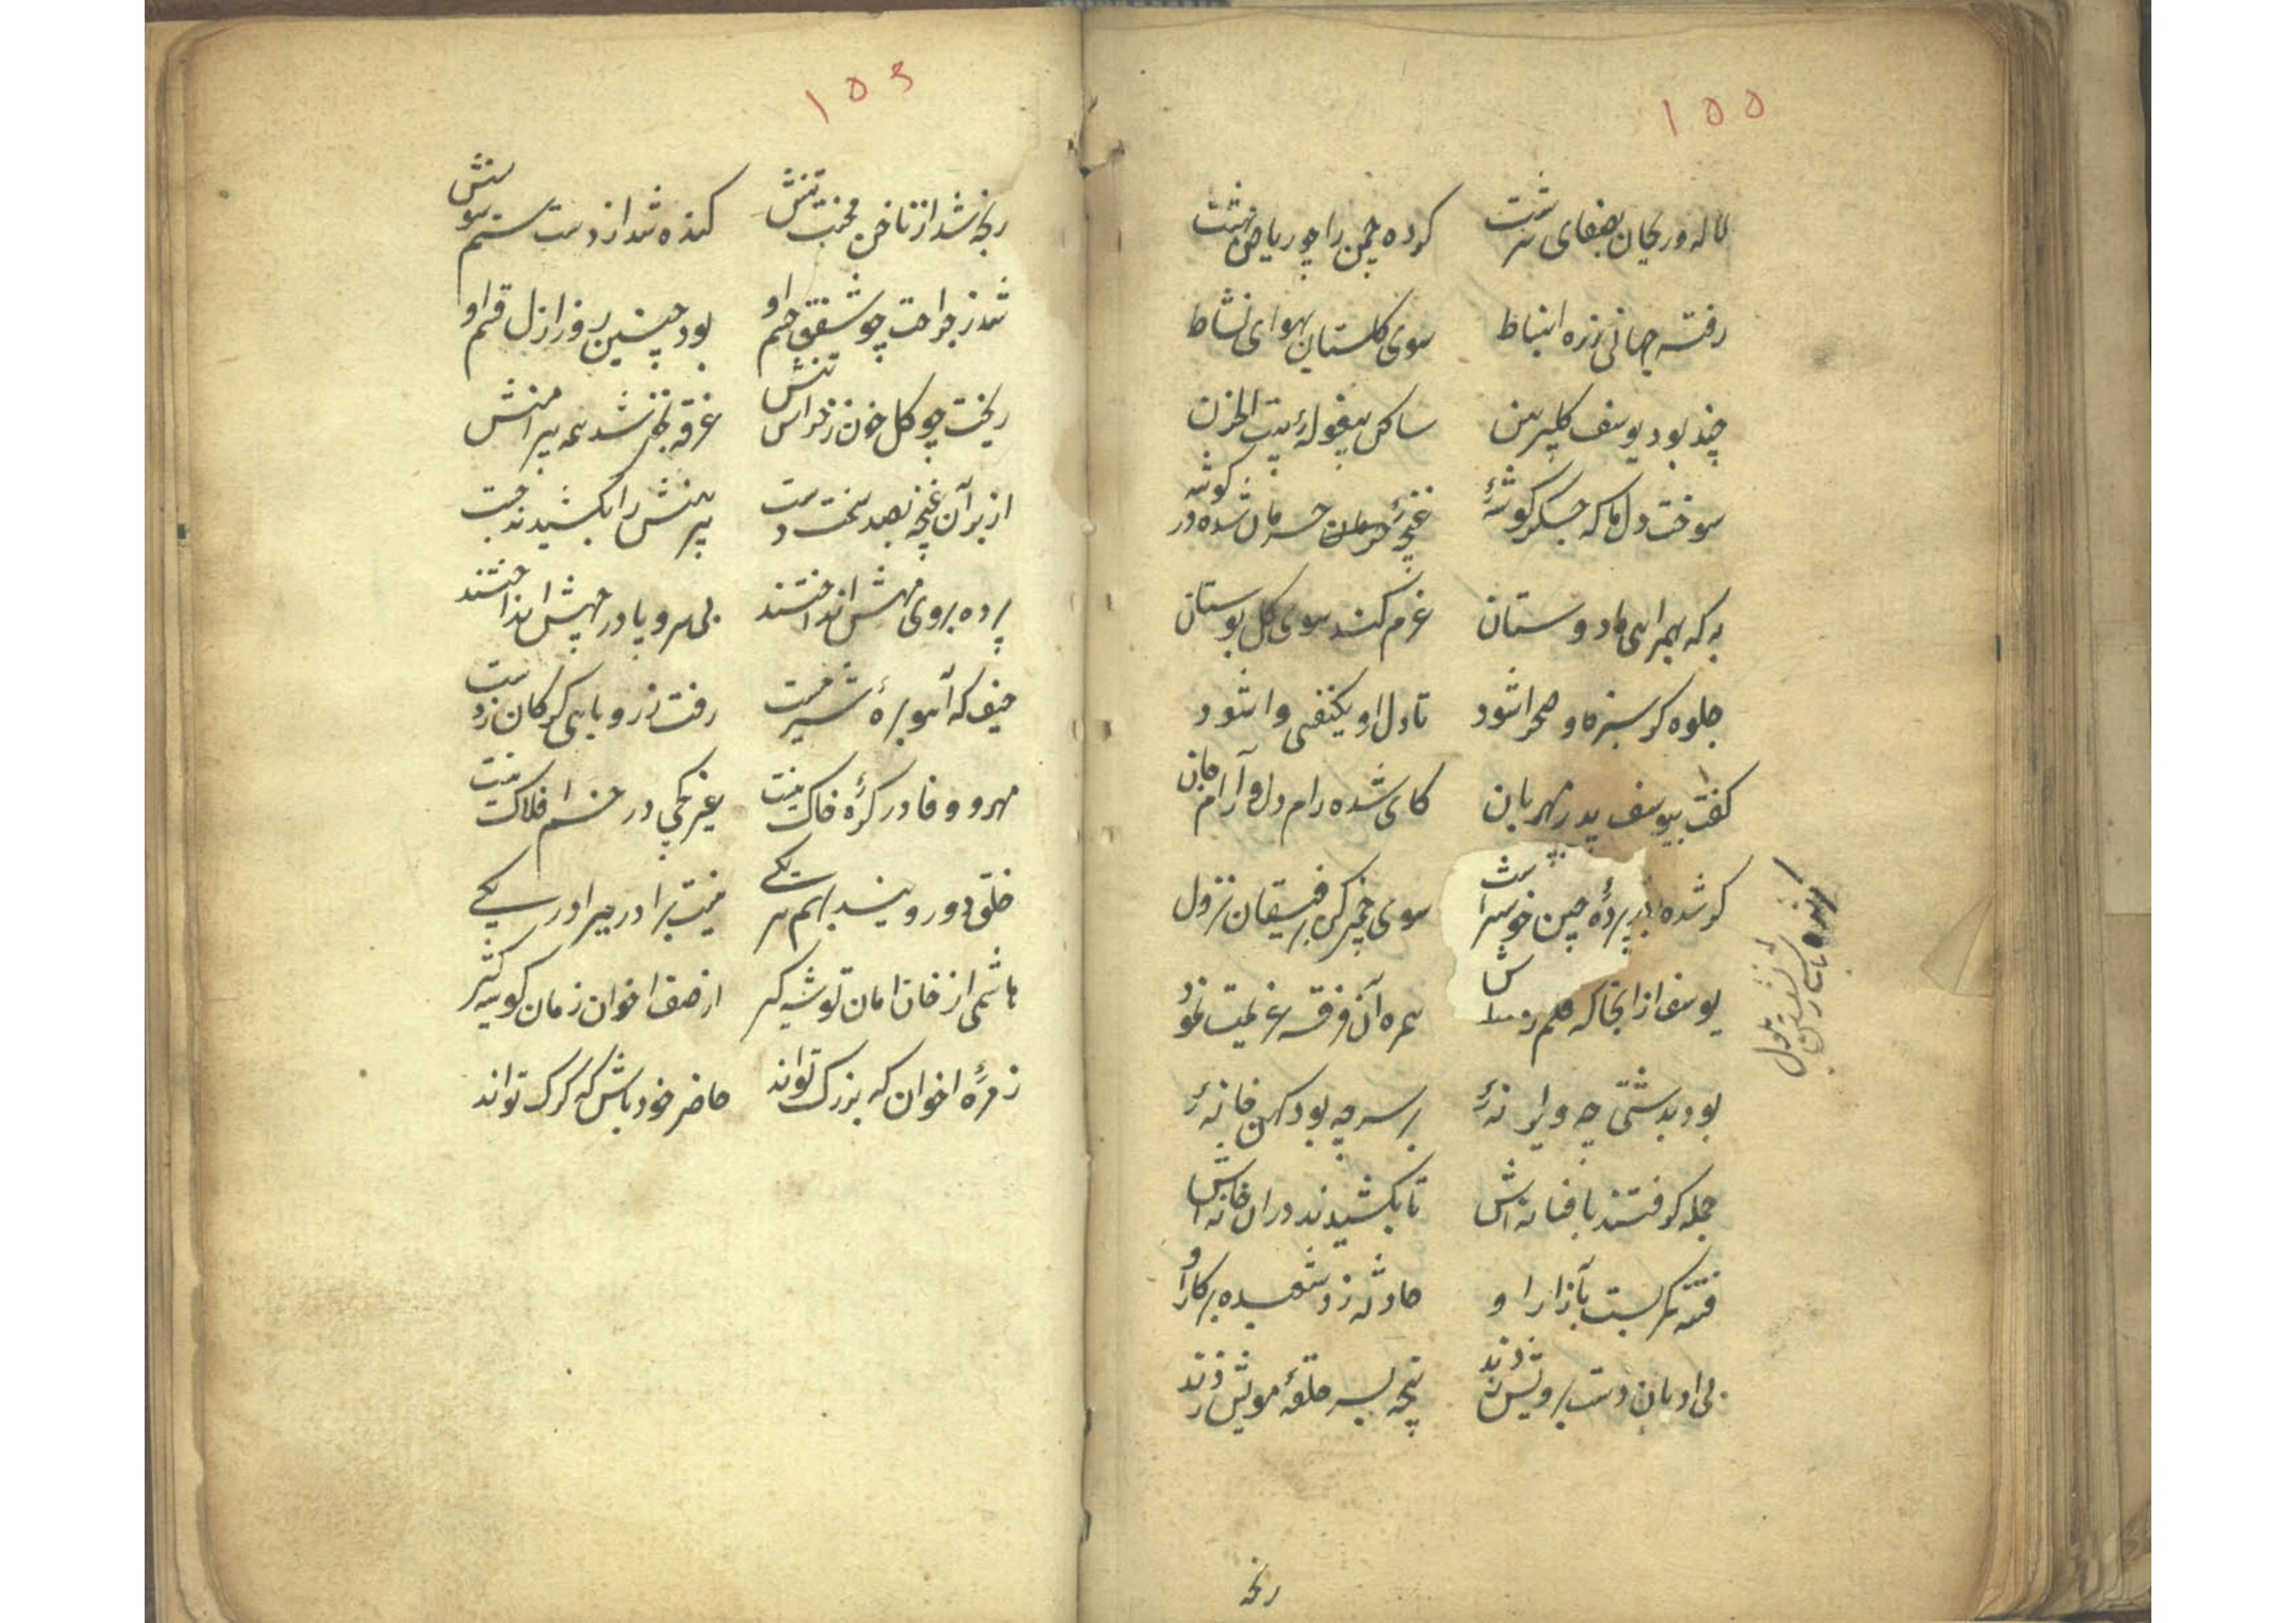 ۱۵۵
لاله و ریحان بصفای سرشت کرده چمن را چو ریاض بهشت
رفته جهانی زره انبساط سوی کلستان بهوای نشاط
چند بود یوسف کلپیرهن ساکن بیغولهٔ بیت الحزن
سوخت دل ما که جکر کوشهٔ غنچهٔ حرمان شده در کوشه
به که بهمراهی ما دوستان عزم کند سوی کل بوستان
جلوه کر سبزه و صحرا شود تا دل او یکنفسی وا شود
کفت بیوسف پدر مهربان کای شده رام دل و آرام جان
کر شده در پردهٔ چین خوش سرشت سوی چمن کن برفیقان نزول
یوسف از انجا که همره آن فرقه عزیمت نمود
بود بدشتی چه ویرانهٔ بر سر چه بود کهن خانهٔ
جمله کرفتند بافسانه اش تا بکشیدند دران خانه اش
فتنه کمر بست بآزار او حادثه زد شعبده بر کار او
بی ادبان دست برویش زدند پنجه بسر حلقهٔ مویش زدند
رنجه
۱۵۶
رنجه شد از ناخن محنت تنش کنده شد از دست ستم سوسنش
شد ز جراحت چو شفق جسم او بود چنین روز ازل قسم او
ریخت چو کل خون ز خراش تنش غرقه بخون شد همه پیراهنش
از بر آن غنچه بصد سخت دست پیرهنش را بکشیدند چست
پرده بروی مهش انداختند بی سر و پا در چهش انداختند
حیف که آهو برهٔ شیر مست رفت ز روباهی کرکان زدست
مهر و وفا در کرهٔ خاک نیست غیر کجی در خم افلاک نیست
خلق دو رویند بهم سر یکے نیست برادر ببرادر یکے
هاشمی از خان امان توشه کیر از صف اخوان زمان کوشه کیر
زمرهٔ اخوان که بزرک تواند حاضر خود باش که کرک تواند